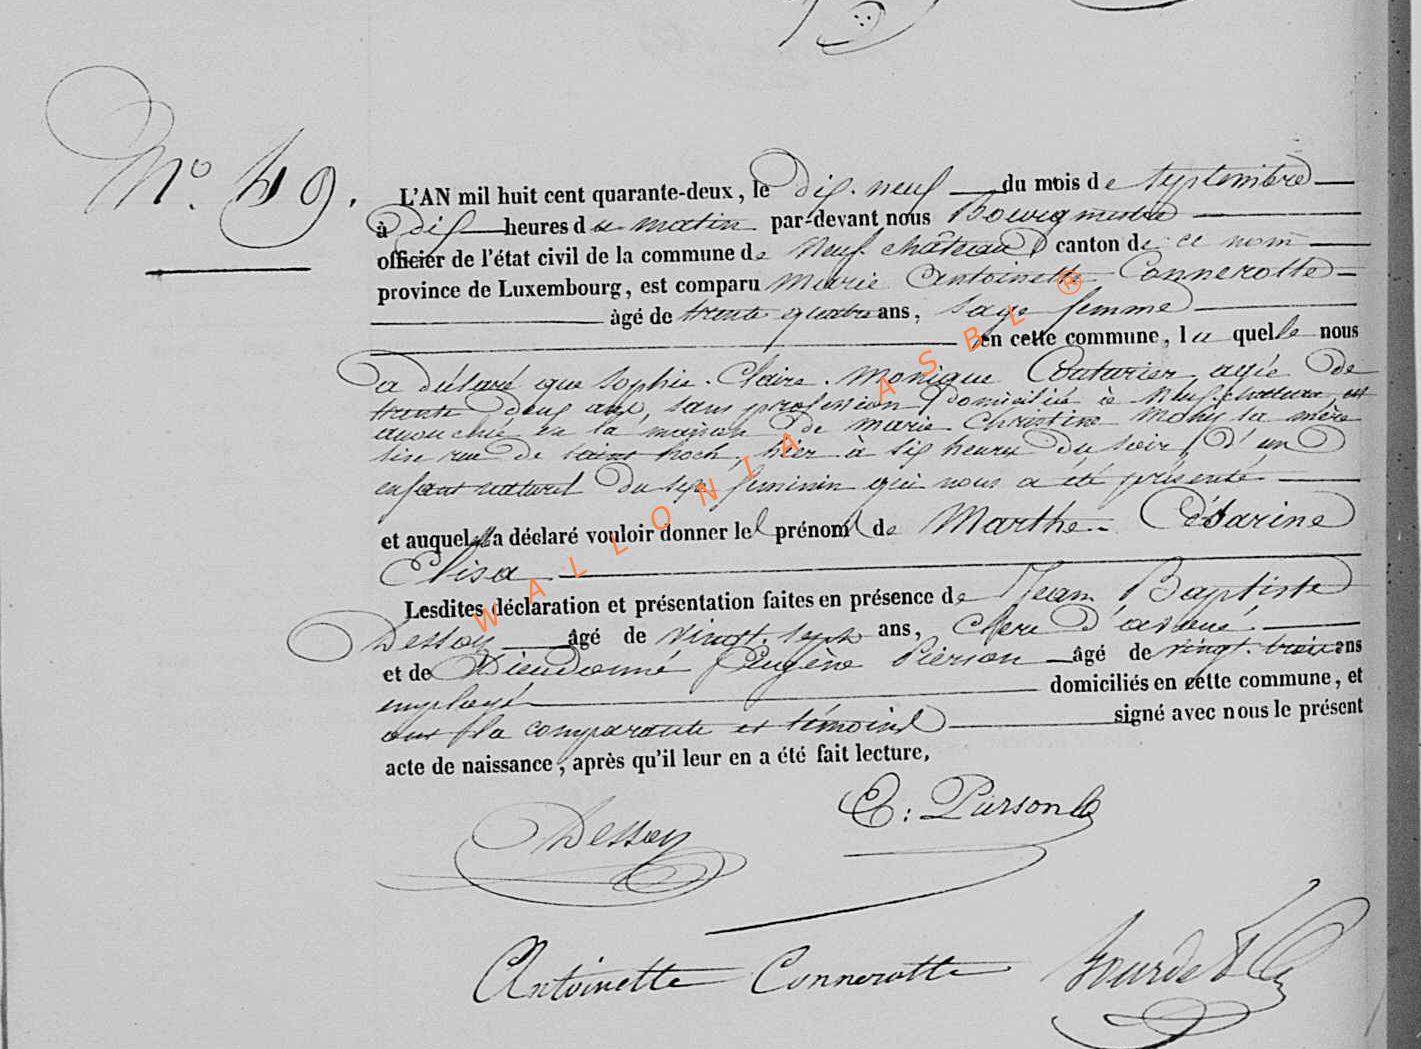 N.º 49.
L'AN mil huit cent quarante-deux, le dix-neuf du mois de Septembre
à dix heures du matin par-devant nous Bourgmestre
officier de l'état civil de la commune de Neufchâteau canton de ce nom
province de Luxembourg, est comparu Marie Antoinette Connerotte
âgé de trente quatre ans, Sage femme
en cette commune, laquelle nous
a déclaré que Sophie. Claire. Monique Couturier agée de
trente deux ans, sans profession domiciliée à Neufchateau, est
accouchée en la maison de Marie Christine Mohy sa mère
sise rue de Saint Roch, hier à six heures du soir, d'un
enfant naturel du sexe féminin qui nous a été présenté
et auquel elle a déclaré vouloir donner le prénom de Marthe- Césarine
Elisa
Lesdites déclaration et présentation faites en présence de Jean Baptiste
Dessoy âgé de vingt-sept ans, Clerc d'avoué.
et de Dieudonné Eugène Pierson âgé de vingt-trois ans
employé domiciliés en cette commune, et
ont la comparante et témoins signé avec nous le présent
acte de naissance, après qu'il leur en a été fait lecture,
Dessoy E: Pierson
Antoinette Connerotte
WALLONIA ASBL ®